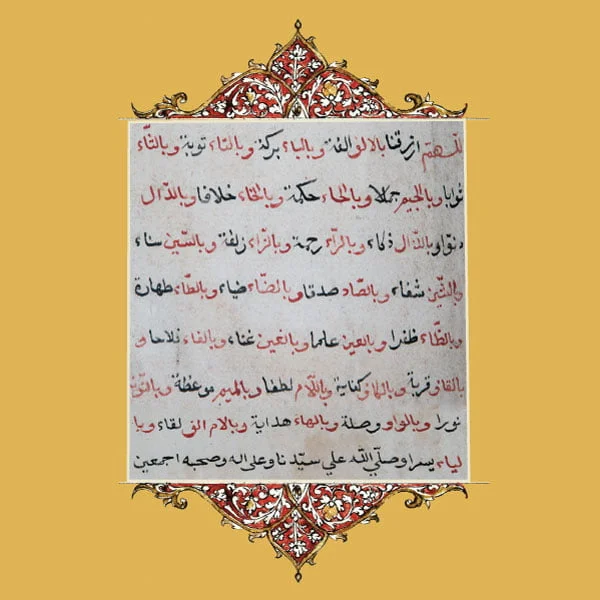 اللهم ارزقنا بالالف الفة وبالباء بركة وبالتاء توبة وبالثاء
ثوابا وبالجيم جمالا وبالحاء حكمة وبالخاء خلافا وبالدال
دنوا وبالذال ذكاء وبالراء رحمة وبالزاء زلفة وبالسين سناء
وبالشين شفاء وبالصاد صدقا وبالضاء ضياء وبالطاء طهارة
وبالظاء ظفرا وبالعين علما وبالغين غناء وبالفاء فلاحا و
بالقاف قربة وبالكاف كفاية وباللام لطفا وبالميم موعظة وبالنون
نورا وبالواو وصلة وبالهاء هداية وبالام الف لقاء وبا
لياء يسرا وصلّي الله علي سيّدنا وعلى اله وصحبه اجمعين